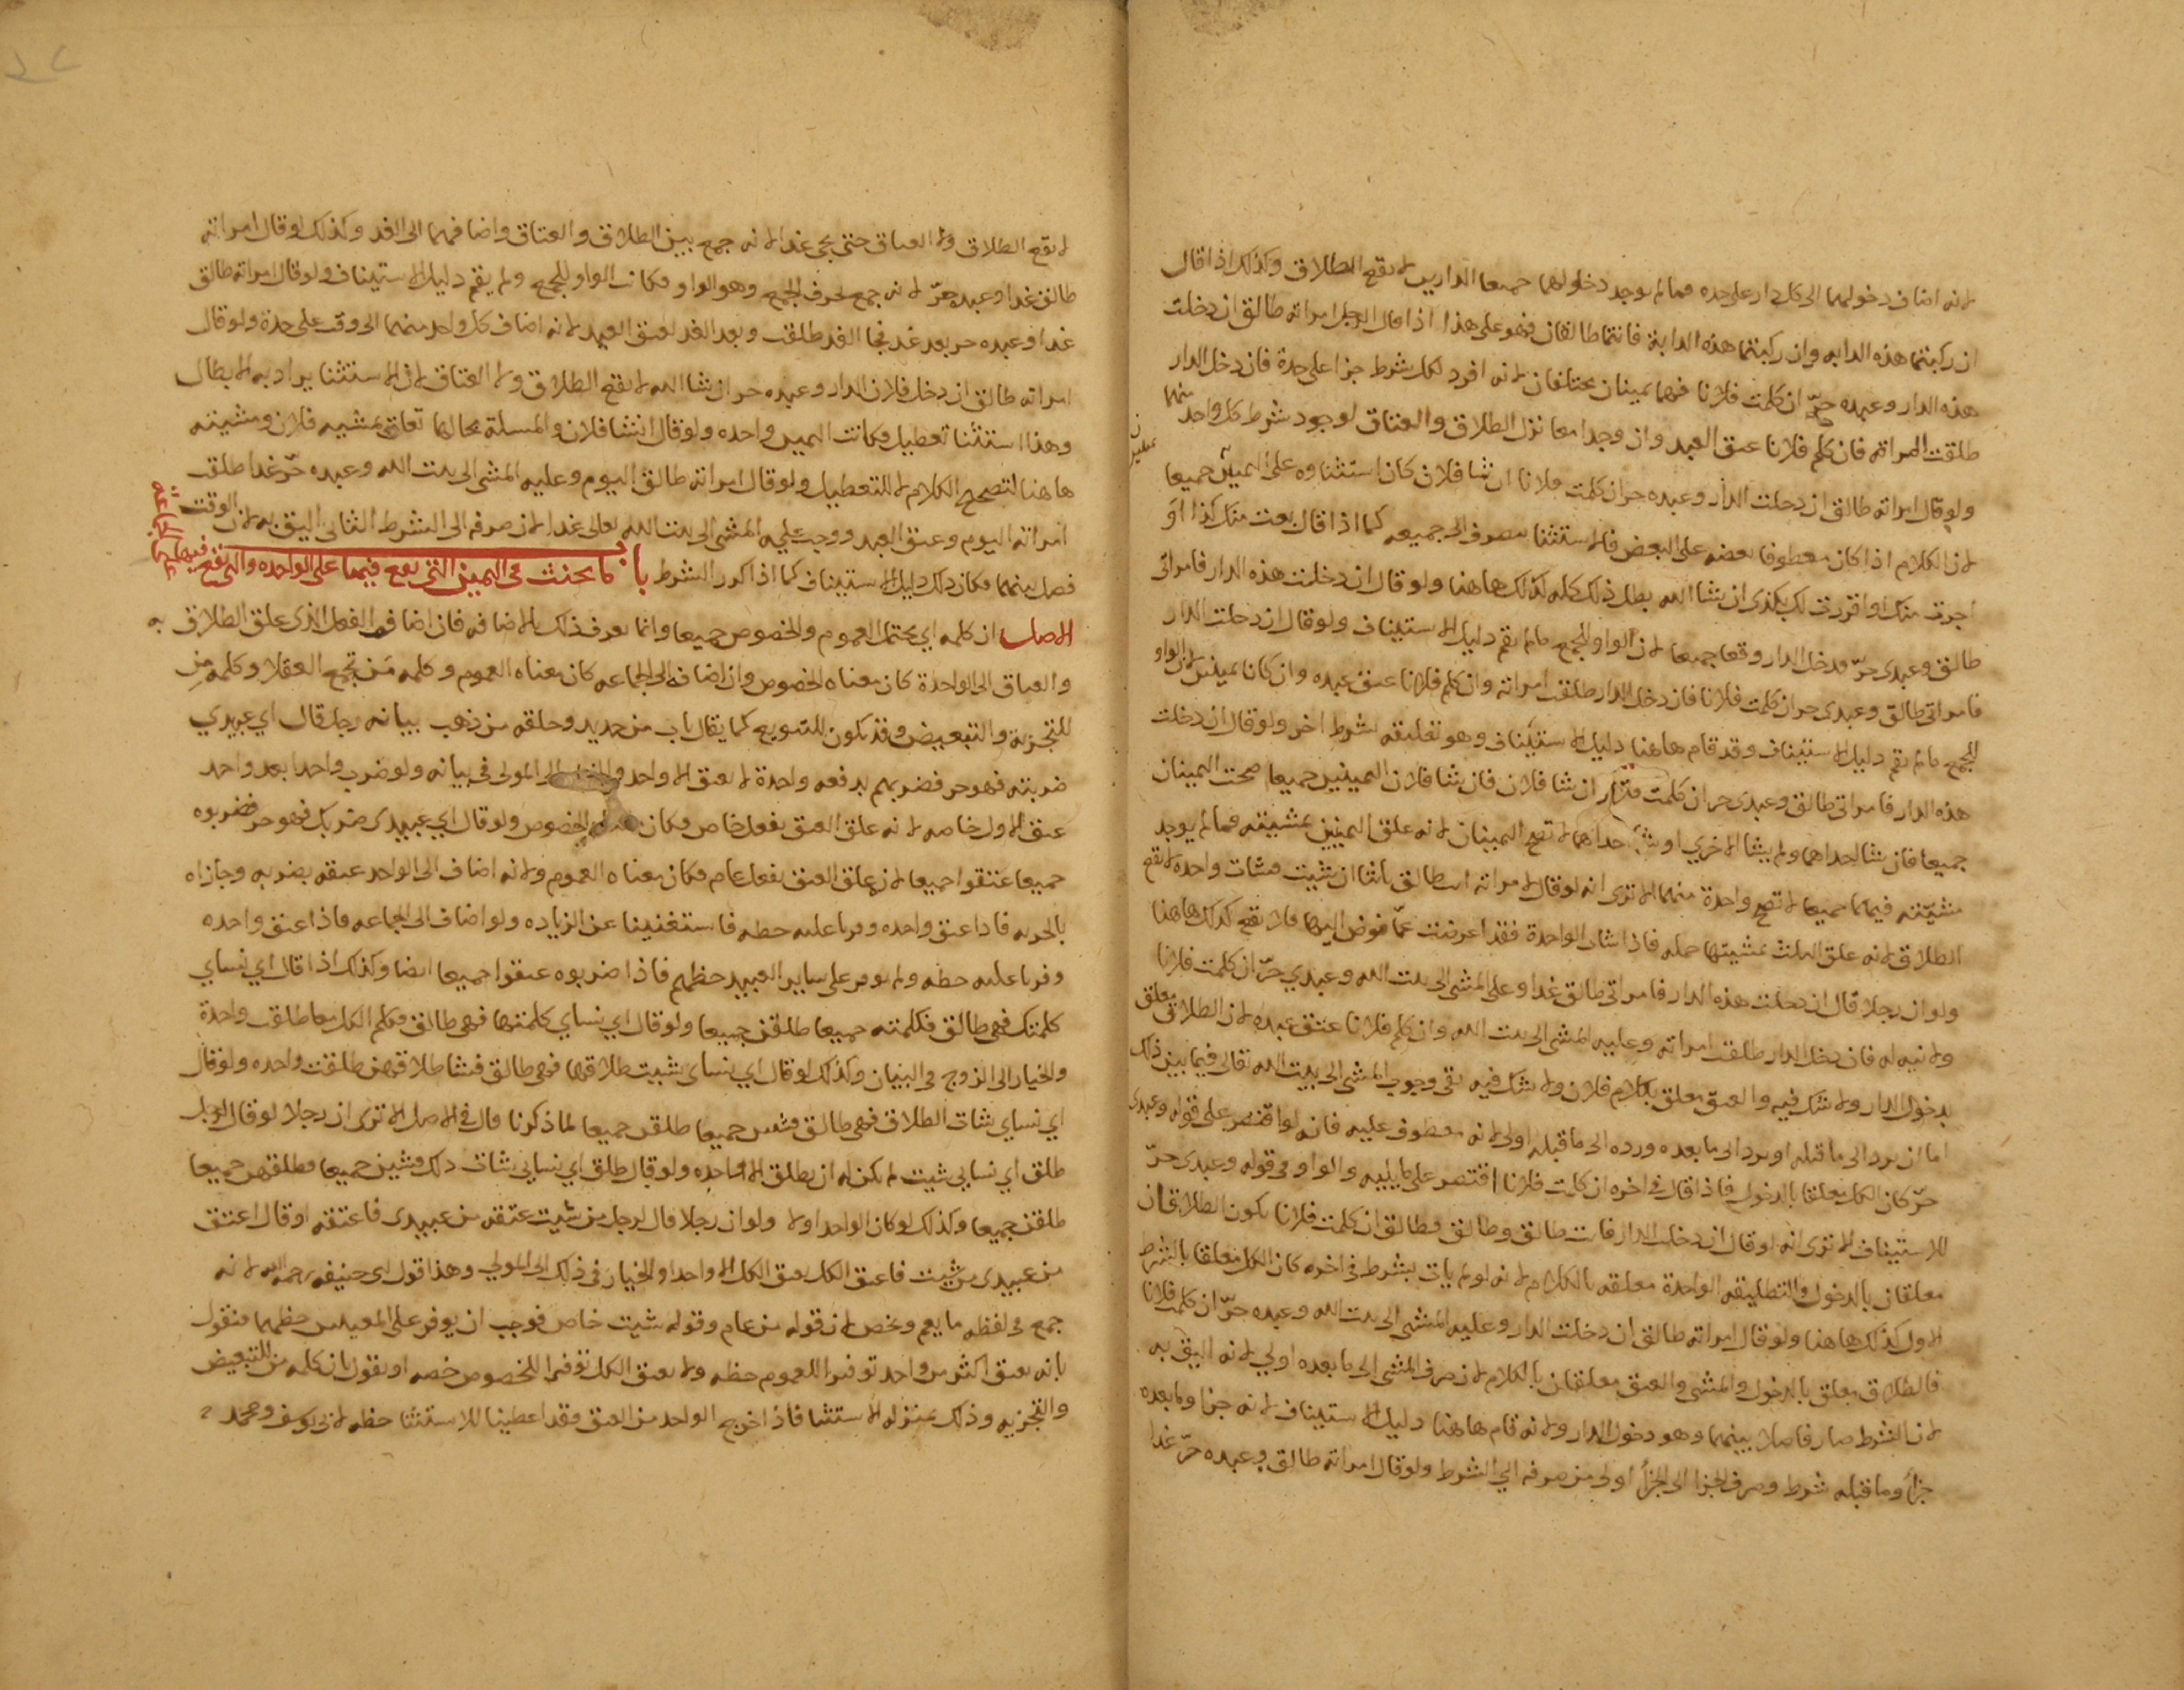 لانه اضاف دخولهما الى كل دار على حده فما لم يوجد دخولهما جميعا الدارين لا يقع الطلاق وكذلك اذا قال
ان ركبتما هذه الدابه وان ركبتما هذه الدابة فانتما طالقان فهو على هذا اذا قال الرجل امراته طالق ان دخلت
هذه الدار وعبده حرّ ان كلمت فلانا فهما يمينان مختلفان لانه افرد لكل شرط جزا على حدة فان دخل الدار
طلقت امراته فان كلم فلانا عتق العبد وان وجدا معا نزل الطلاق والعتاق لوجود شرط كل واحد منهما
ولو قال امراته طالق ان دخلت الدار وعبده حر ان كلمت فلانا ان شا فلان كان استثناوه على اليمين جميعا
لان الكلام اذا كان معطوفا بعضه على البعض فالاستثنا مصروف الى جميعه كما اذا قال بعت منك كذا او
اجرت منك او اقررت لك بكذى ان شا الله بطل ذلك كله لذلك هاهنا ولو قال ان دخلت هذه الدار فامراتى
طالق وعبدى حرّ فدخل الدار وقعا جميعا لان الواو للجمع ما لم يقم دليل الاستيناف ولو قال ان دخلت الدار
فامراتى طالق وعبدى حر ان كلمت فلانا فان دخل الدار طلقت امراته وان كلم فلانا عتق عبده وان كانا يمينين لان الواو
للجمع ما لم يقم دليل الاستيناف وقد قام هاهنا دليل الاستيناف وهو تعليقه بشرط اخر ولو قال ان دخلت
هذه الدار فامراتى طالق وعبدى حر ان كلمت فلانا ان شا فلان فان شا فلان اليمينين جميعا صحت اليمينان
جميعا فان شا احداهما ولم يشا الاخري او شا احداهما لا تصح اليمينان لانه علق اليمينين بمشيته فما لم يوجد
مشيّته فيهما جميعا لا تصح واحدة منهما الا ترى انه لو قال لامراته انت طالق ثلثا ان شيت فشات واحدة لا تقع
الطلاق لانه علق الثلث بمشيتها جمله فاذا شات الواحدة فقد اعرضت عمّا فوض اليها فلا تقع كذلك هاهنا
ولو ان رجلا قال ان دخلت هذه الدار فامراتى طالق غدا وعلى المشى الى بيت الله وعبدي حرّ ان كلمت فلانا
ولا نيه له فان دخل الدار طلقت امراته وعليه المشى الى بيت الله وان كلم فلانا عتق عبده لان الطلاق تعلق
بدخول الدار ولا شك فيه والعتق معلق بكلام فلان ولا شك فيه بقى وجوب المشى الى بيت الله تعالى فيما بين ذلك
اما ان يرد الى ما قبله او يرد الى ما بعده ورده الى ما قبله اولى لانه معطوف عليه فانه لو اقتصر على قوله وعبدى
حرّ كان الكل معلقا بالدخول فاذا قال فى اخره ان كلمت فلانا اقتصر على ما يليه والواو فى قوله وعبدى حرّ
للاستيناف الا ترى انه لو قال ان دخلت الدار فانت طالق وطالق وطالق ان كلمت فلانا يكون الطلاقان
معلقان بالدخول والتطليقه الواحدة معلقه بالكلام لانه لو لم يات بشرط فى اخره كان الكل معلقا بالشرط
الاول كذلك هاهنا ولو قال امراته طالق ان دخلت الدار وعليه المشى الى بيت الله وعبده حرّ ان كلمت فلانا
فالطلاق معلق بالدخول والمشى والعتق معلقان بالكلام لان صرف المشى الى ما بعده اولي لانه اليق به
لان الشرط صار فاصلا بينهما وهو دخول الدار ولانه قام هاهنا دليل الاستيناف لانه جزا وما بعده
جزأ وما قبله شرط وصرف الجزا الى الجزأ اولى من صرفه الي الشرط ولو قال امراته طالق وعبده حرّ غدا
لا يقع الطلاق ولا العتاق حتى يجى غدا لانه جمع بين الطلاق والعتاق واضافهما الى الغد وكذلك لو قال امراته
طالق غدا وعبده حرّ لانه جمع بحرف الجمع وهو الواو فكانت الواو للجمع ولم يقم دليل الاستيناف ولو قال امراته طالق
غدا وعبده حر بعد غد فجا الغد طلقت وبعد الغد يعتق العبد لانه اضاف كل واحد منهما الى وقت على حدة ولو قال
امراته طالق ان دخل فلان الدار وعبده حر ان شا الله لا يقع الطلاق ولا العتاق لان الاستثنا يراد به الابطال
وهذا استثنا تعطيل فكانت اليمين واحده ولو قال ان شا فلان والمسلة بحالها تعلق بمشيه فلان ومشيته
هاهنا لتصحيح الكلام لا للتعطيل ولو قال امراته طالق اليوم وعليه المشى الى بيت الله وعبده حرّ غدا طلقت
امراته اليوم وعتق العبد ووجب عليه المشى الى بيت الله تعالى غدا لان صرفه الى الشرط الثانى اليق به لان الوقت
فصل بينهما فكان ذلك دليل الاستيناف كما اذا كرر الشرط باب ما يحنث فى اليمين التى يقع فيها على الواحده والتى تقع فيها على
الاصل ان كلمه اي يحتمل العموم والخصوص جميعا وانما يعرف ذلك بالاضافه فان اضافه الفعل الذى علق الطلاق به
والعتاق الى الواحدة كان معناه الخصوص وان اضافه الى الجماعه كان معناه العموم وكلمه مَن تجمع العقلا وكلمه مِن
للتجزية والتبعيض وقد يكون للتنويع كما يقال باب من حديد وحلقه من ذهب بيانه رجل قال اي عبيدي
ضربته فهو حر فضربهم بدفعه واحدة لا يعتق الا واحد والخيار الى المولى فى بيانه ولو ضرب واحدا بعد واحد
عتق الاول خاصه لانه علق العتق بفعل خاص فكان معناه الخصوص ولو قال اي عبيدى ضربك فهو حر فضربوه
جميعا عتقوا جميعا لانه علق العتق بفعل عام فكان معناه العموم ولانه اضاف الى الواحد عتقه بضربه وجازاه
بالحريه فاذا عتق واحده وفرنا عليه حظه فاستغنينا عن الزياده ولو اضاف الى الجماعه فاذا عتق واحده
وفرنا عليه حظه ولم نوفر على ساير العبيد حظهم فاذا ضربوه عتقوا جميعا ايضا وكذلك اذا قال اي نساي
كلمتك فهى طالق فكلمته جميعا طلقن جميعا ولو قال اي نساي كلمتها فهى طالق فكلم الكل معا طلقت واحدة
والخيار الى الزوج فى البيان وكذلك لو قال اي نساى شيت طلاقها فهى طالق فشا طلاقهن طلقت واحده ولو قال
اي نساي شات الطلاق فهى طالق فشين جميعا طلقن جميعا لما ذكرنا قال فى الاصل الا ترى ان رجلا لو قال لرجل
طلق اي نسايى شيت لم يكن له ان يطلق الا واحده ولو قال طلق اي نسايي شات ذلك فشين جميعا فطلقهن جميعا
طلقن جميعا وكذلك لو كان الواحد اولا ولو ان رجلا قال لرجل من شيت عتقه من عبيدى فاعتقه او قال اعتق
من عبيدى من شيت فاعتق الكل يعتق الكل الا واحدا والخيار فى ذلك الى المولي وهذا قول ابى حنيفه رحمه الله لانه
جمع فى لفظه ما يعم ويخص لان قوله من عام وقوله شيت خاص فوجب ان يوفر على المعنيين حظهما فنقول
بانه يعتق اكثر من واحد توفيرا للعموم حظه ولا يعتق الكل توفيرا للخصوص خصه او نقول بان كلمه من للتبعيض
والتجزيه وذلك بمنزله الاستثنا فاذا اخرج الواحد من العتق فقد اعطينا للاستثنا حظه لابى يوسف ومحمد